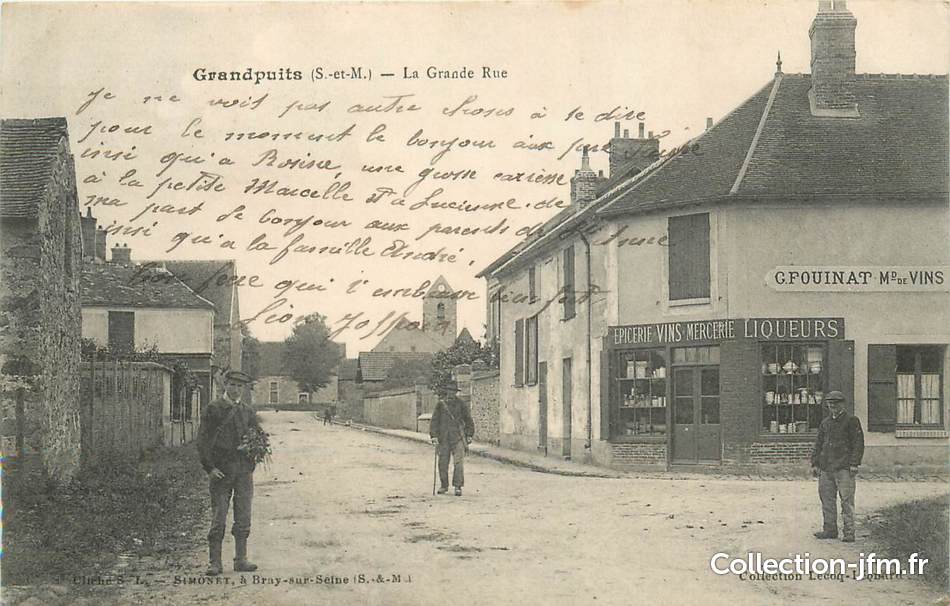 Grandpuits (S.-et-M.) — La Grande Rue
Je ne vois pas autre choses à te dire
pour le moment le bonjour aux père
ainsi qu'a Rosine, une grosse caresse
à la petite Marcelle et à Lucienne. de
ma part de bonjour aux parents de
ainsi qu'a la famille André.
qui t'embrasse
G. FOUINAT · MD DE VINS
EPICERIE VINS MERCERIE LIQUEURS
Cliché S. L. — SIMONET, à Bray-sur-Seine (S.-&-M.)
Collection Lecoq-Liénard
Collection-jfm.fr